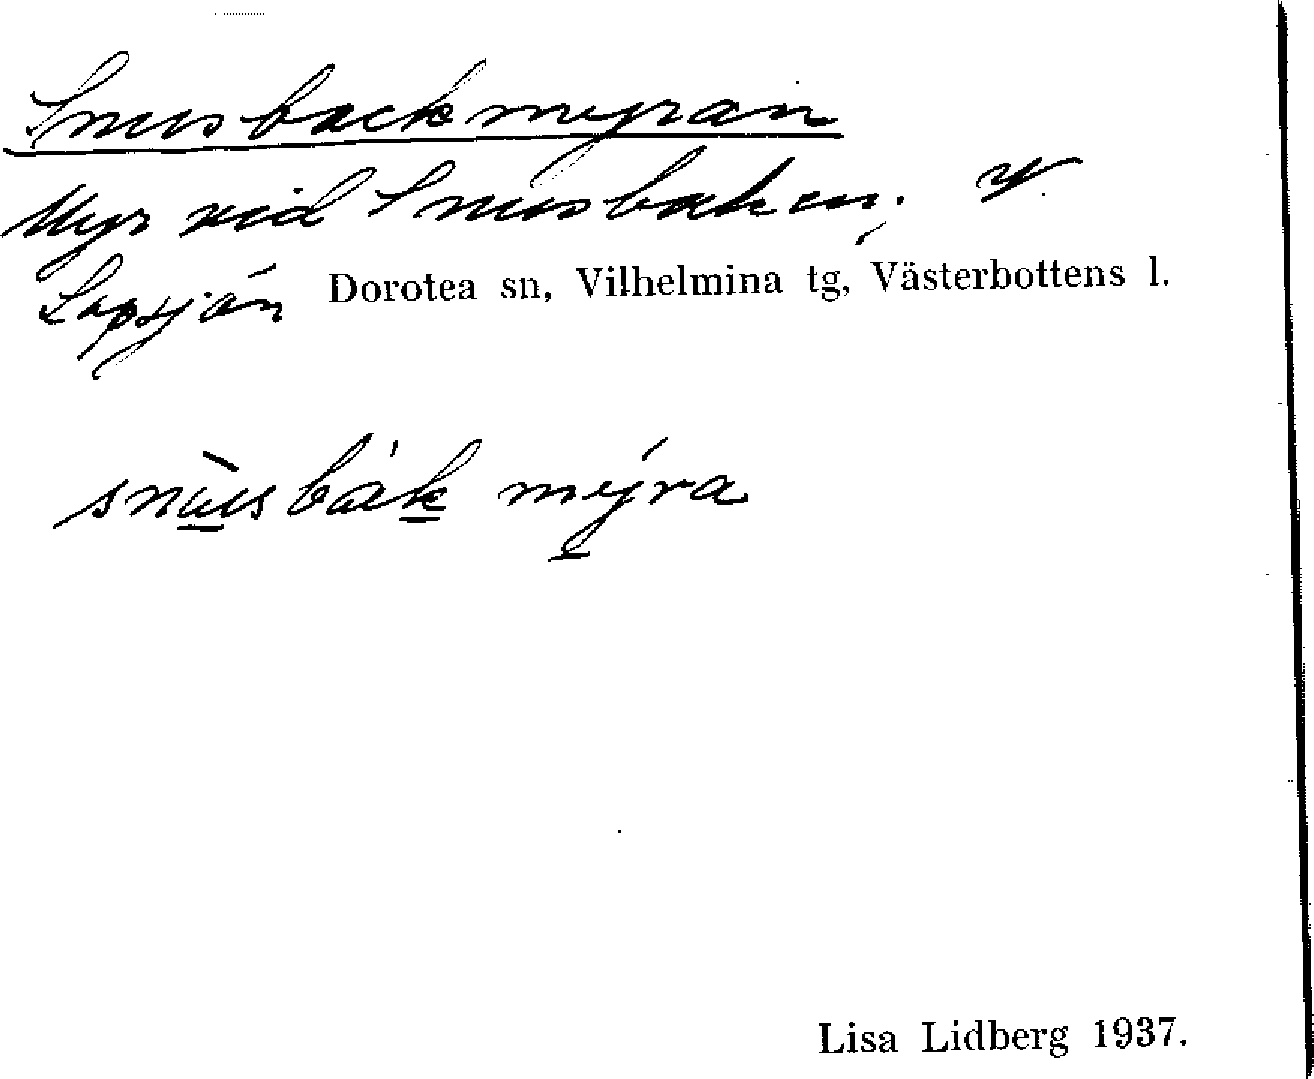 Snusbackmyran
Myr vid Snusbaken, v.
Lapsjön Dorotea sn, Vilhelmina tg, Västerbottens l.
snùusbák mýra
Lisa Lidberg 1937.